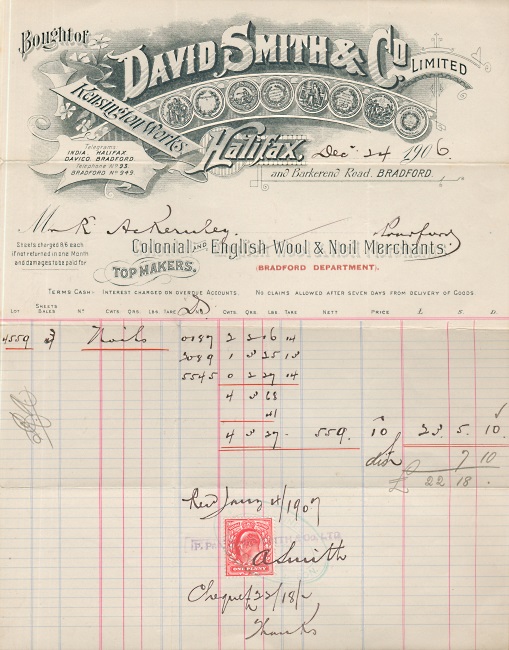 Bought of
DAVID SMITH & Co LIMITED
Kensington Works
Halifax,
Dec. 24 1906.
and Barkerend Road. BRADFORD.
Telegrams
INDIA, HALIFAX.
DAVICO, BRADFORD.
Telephone No 93.
BRADFORD No 949.
Mr R Ackernley. Bradford
Sheets charged 6/6 each
if not returned in one Month
and damages to be paid for
Colonial AND English Wool & Noil Merchants
TOP MAKERS.
(BRADFORD DEPARTMENT).
TERMS CASH. INTEREST CHARGED ON OVERDUE ACCOUNTS. NO CLAIMS ALLOWED AFTER SEVEN DAYS FROM DELIVERY OF GOODS
LOT SHEETS BALES No CWTS. QRS. LBS. TARE CWTS. QRS. LBS. TARE NETT PRICE £ S. D.
4559 3 Noils 0187 2 2 16 14
3089 1 3 25 13
5545 0 2 27 14
4 3 68
41
4 3 27 559. 10 23. 5. 10.
disn 7 10
£ 22 18 .
Recd Jany 4/1907
ONE PENNY
A Smith
Cheque £22/18/-
Thanks